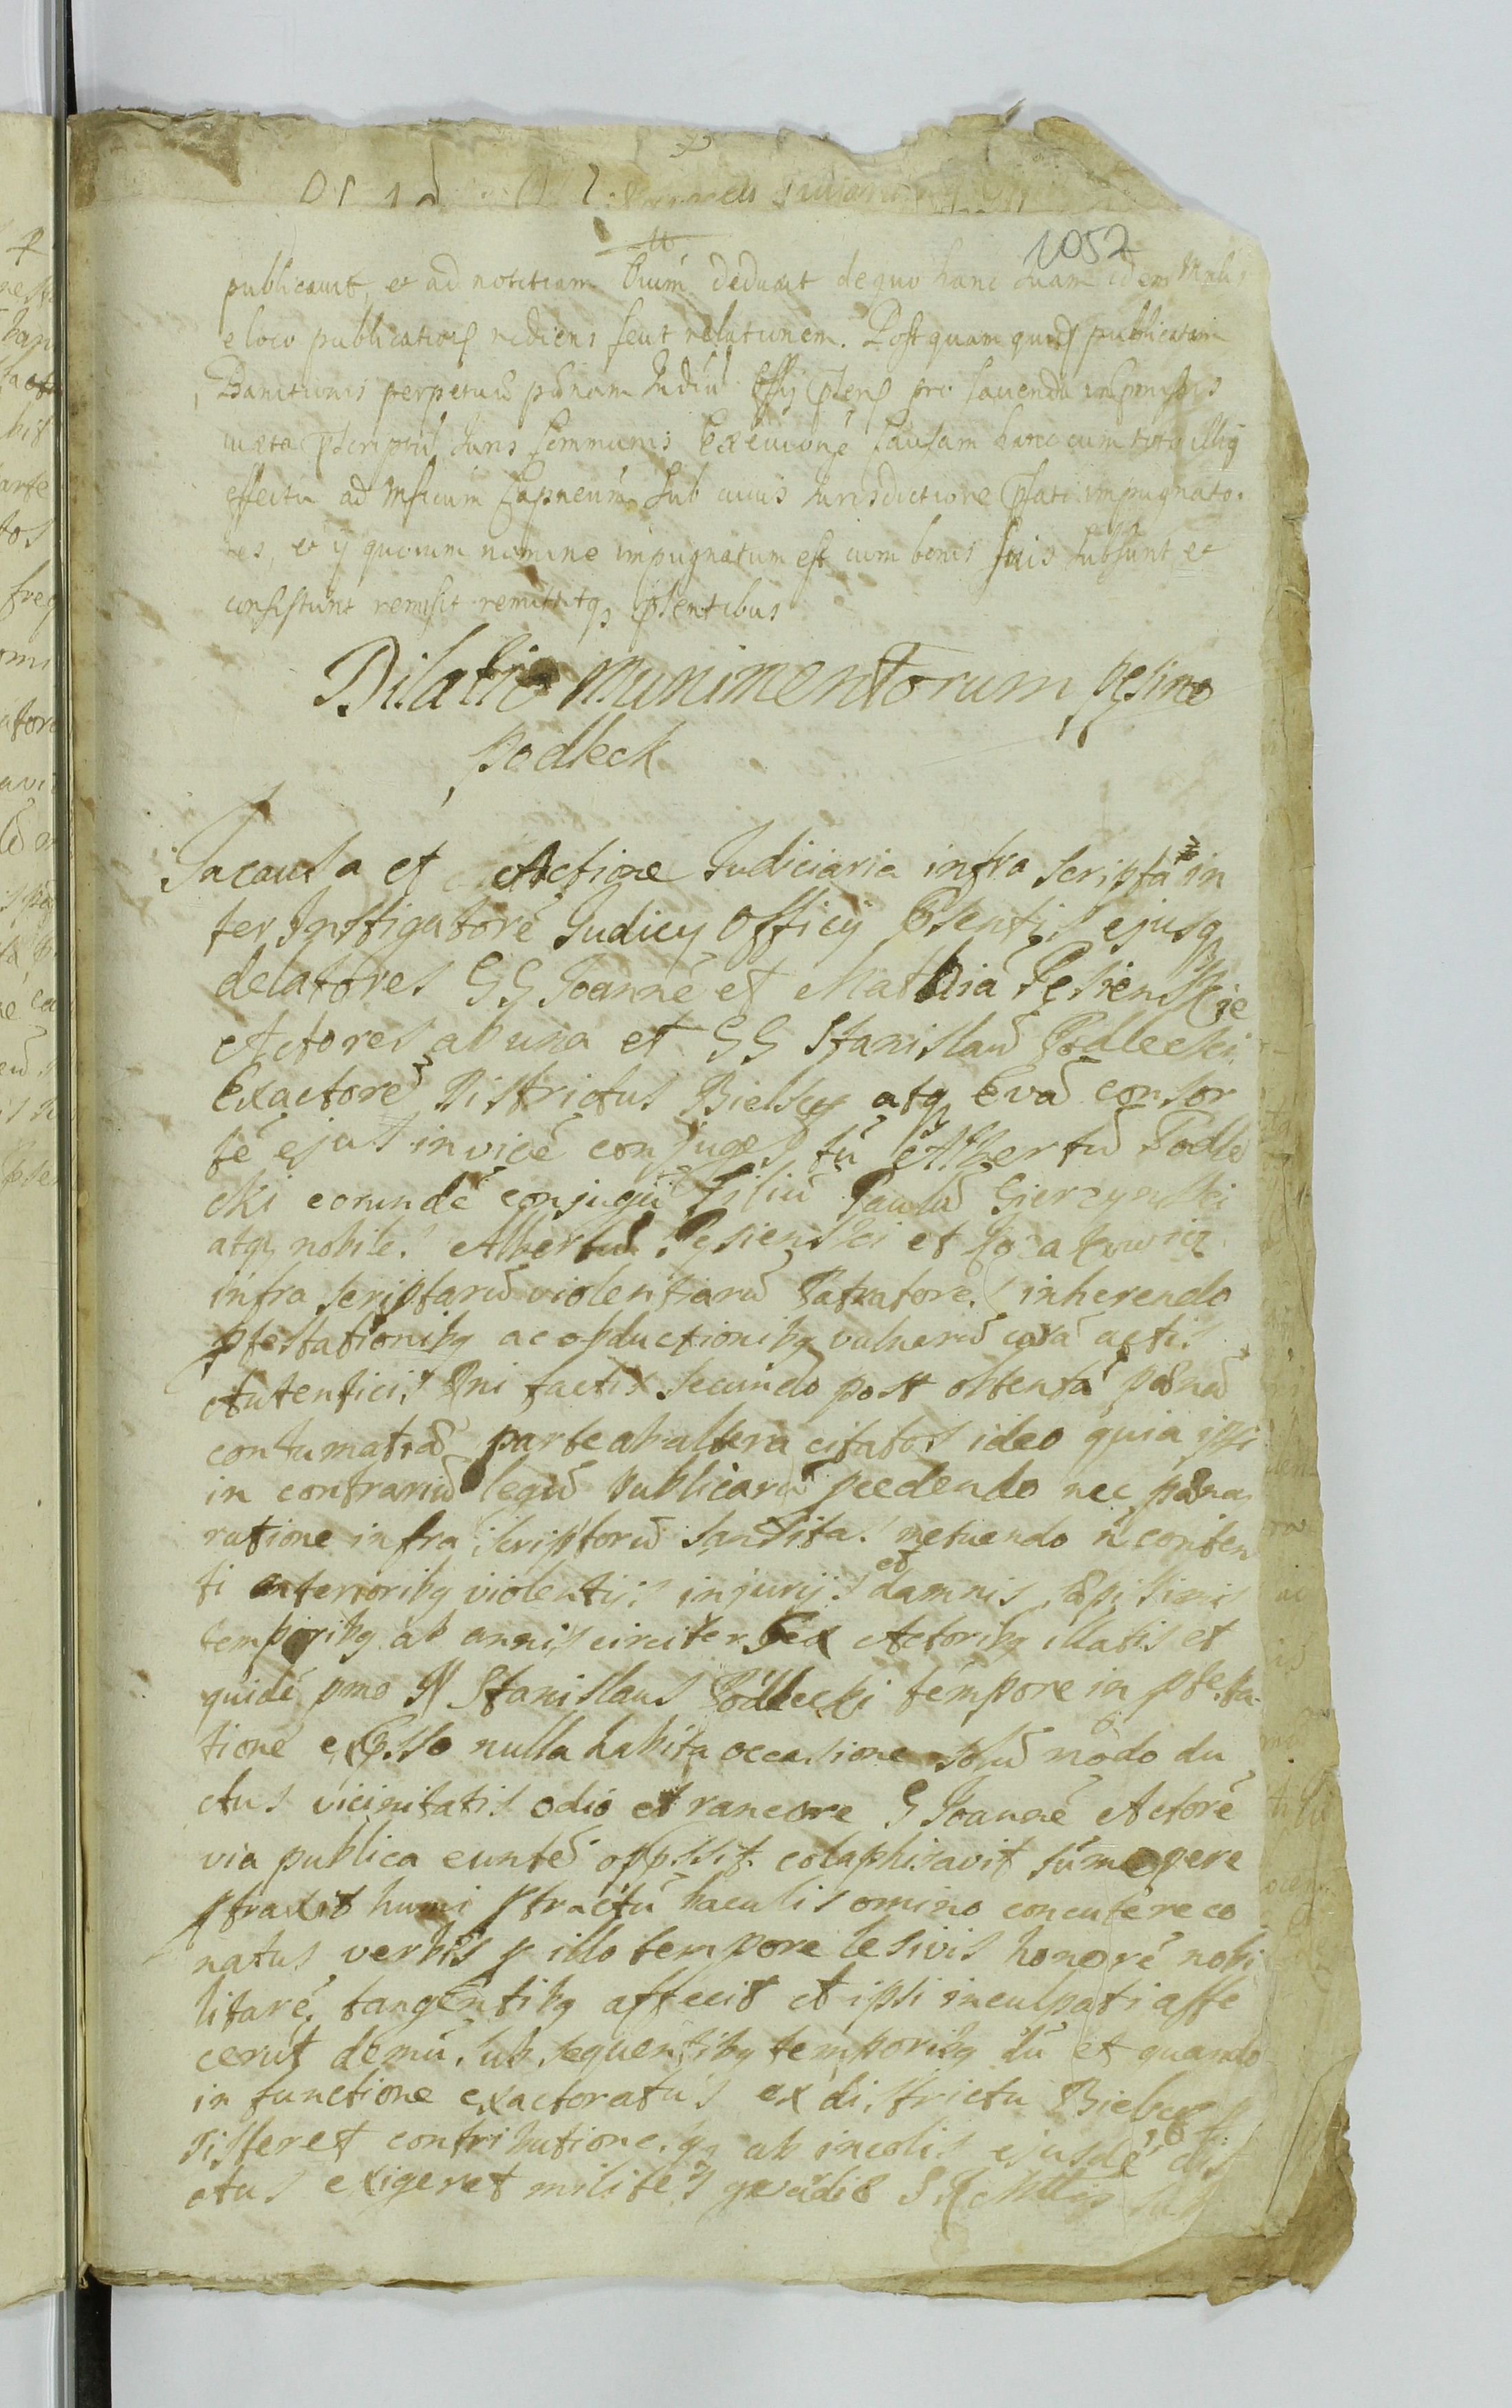 1052
publicavit, et ad notitiam Oium deduxit de quo hanc suam idem Mnlis
e loco publicatiois rediens fecit relationem. Post quam quidem publicatam
Banitionis perpetuae paenam Iudiu Offij Psens pro favenda in pmissis
iuxta Pscriptu Iuris Communis Executione Causam hanc cum toto illiq
effectu ad Mficum Capneum sub cuius Iurisdictione Psati impugnato-
res, et ij quorum nomine impugnatum est cum bonis suis subsunt et
consistunt remisit remittitq psentibus
Dilatio munimentorum pęsino
podleck
In causa et Actione Iudiciaria infra scripta in
ter Instigatore Iudicy Officij Psentis ejusq
delatores GG Joanne et Mathia Pęsienskie
Actores ab una et GG Stanislau Podlecki
Exactore Districtus Bielscy atq Eva consor
te ejus invice conjuges tu Albertu Podle
cki eorunde conjugu Filiu Paulu Gierzynski
atq nobile. Albertu Pęsienski et
infra scriptaru violentiaru Patratore. inherendo
ptestationibq ac obductionibq vulneru cora actis
Autenticis Pni factis secundo post obtenta paena
contumatia parte ab altera citatos ideo quia ipsi
in contrariu legu publicaru pcedendo nec paena
ratione infra scriptoru sancita. metuendo n conten
ti anterioribq violentiis injurijs et damnis
temporibq ab annis circiter sex Actoribq illatis et
quide pmo N Stanislaus Podlecki tempore in ptesta-
tione expsso nulla habita occasione solu modo du
ctus vicinitatis odio et rancore G Joanne Actore
via publica eunte oppssit colaphisavit sumopere
pstraxit humi pstractu baculis omino concutere co
natus verbis p illo tempore lesivis honore nobi
litare tangentibq affecit et ipsi inculpati affe
cerut demu subsequentibq temporibq du et quando
in functione exactoratus ex districtu Bielscen
sisteret contributione. qq ab incolis ejusde dist
ctus exigeret milites